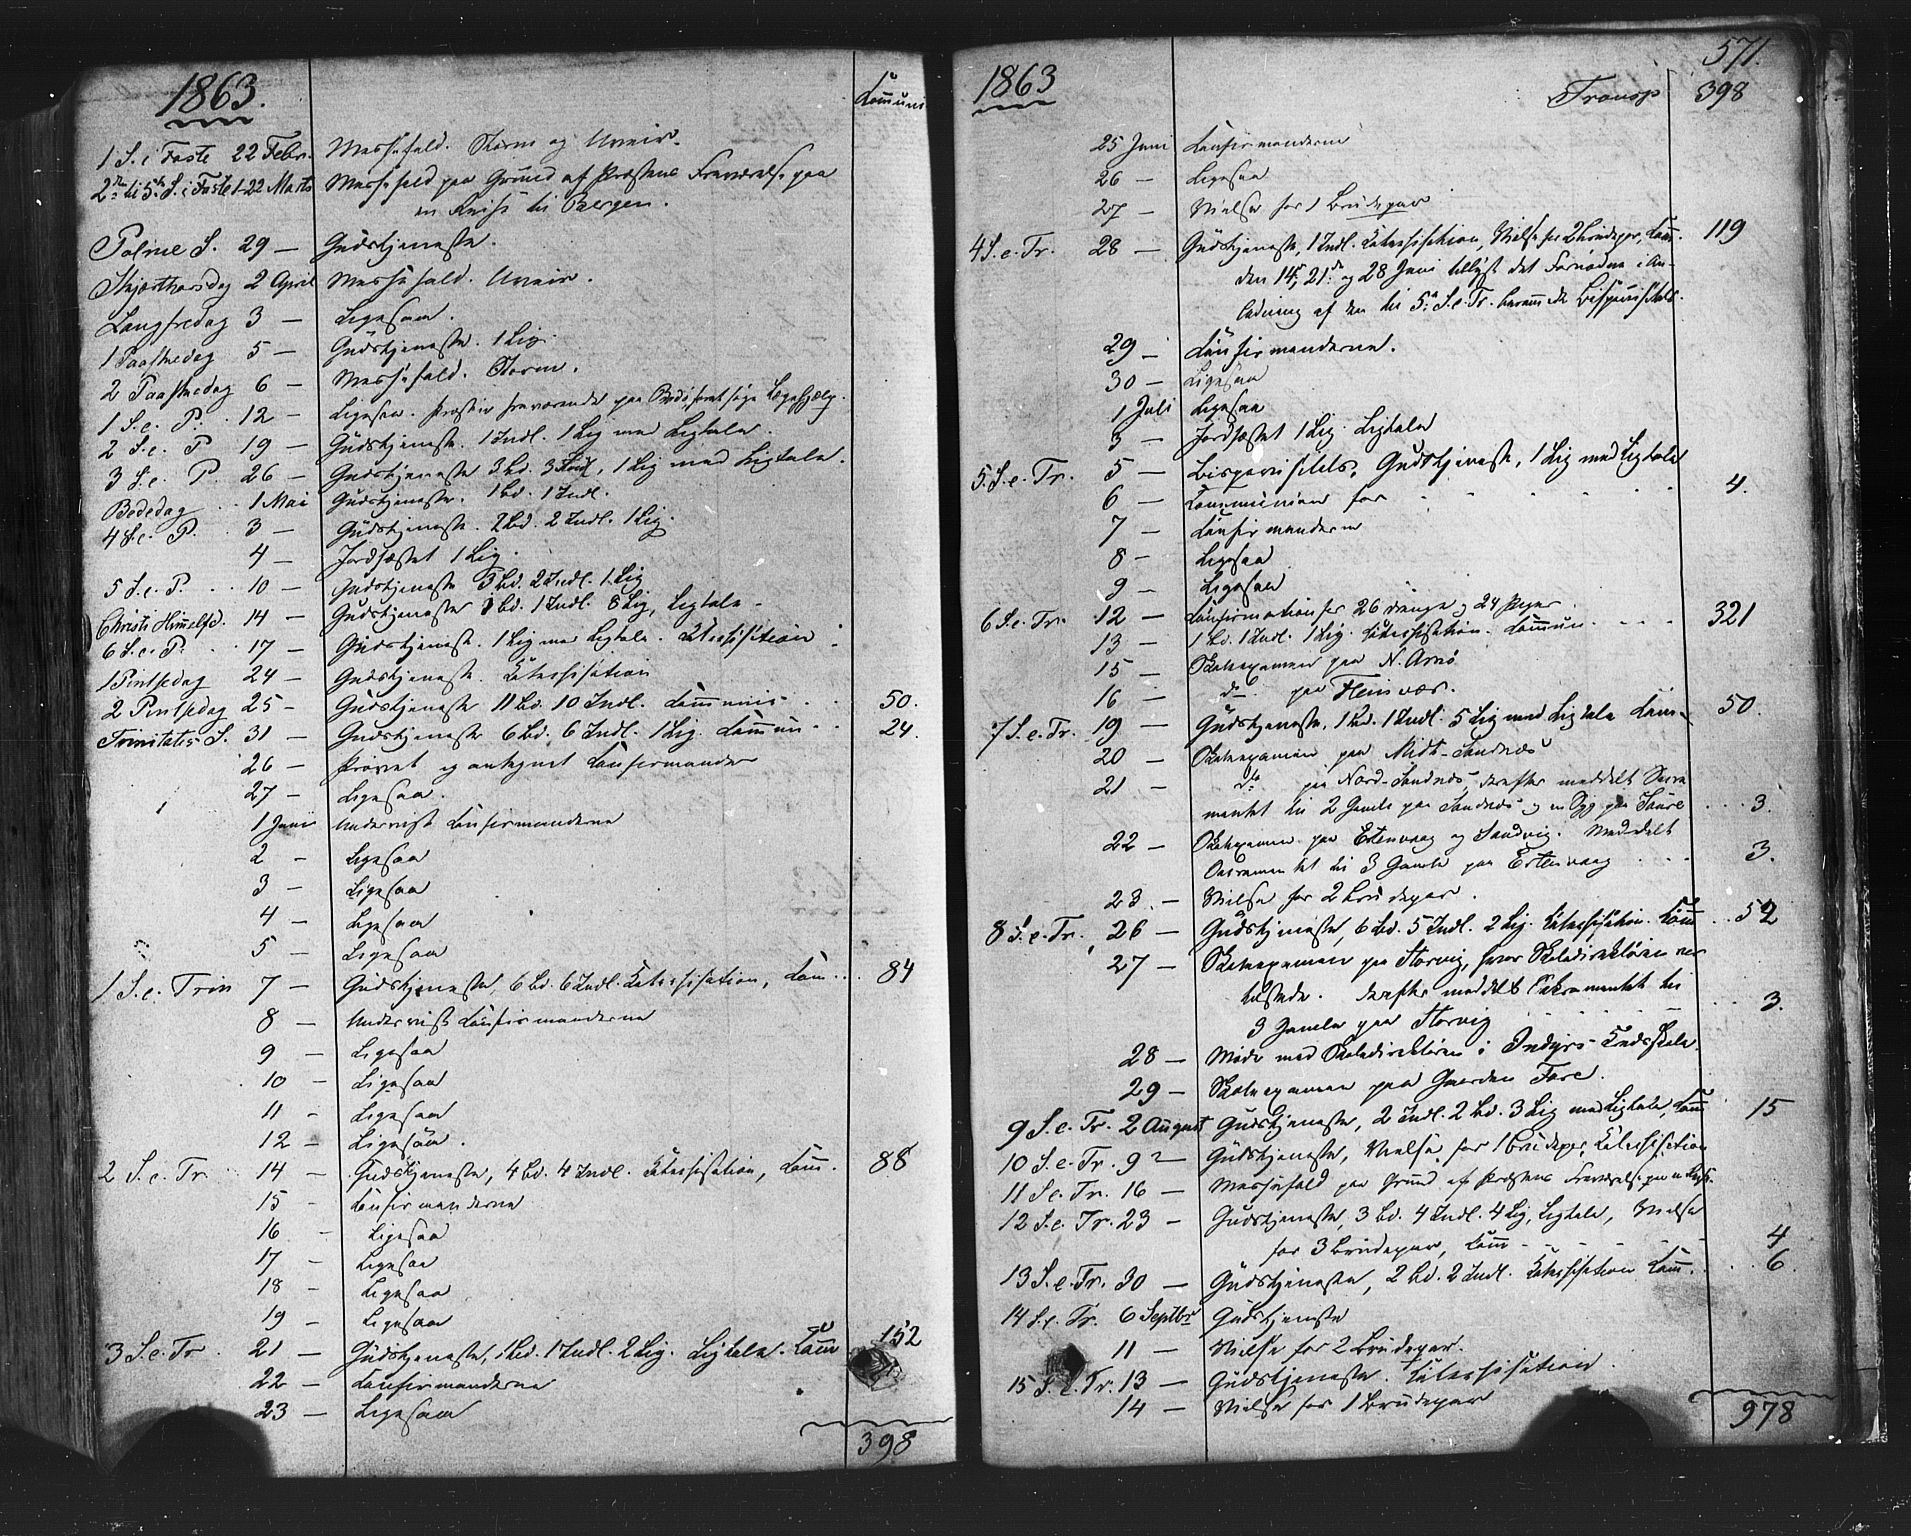 1863.
Commun.
1 S. i Faste 22 Febr. Messefald. Storm og Uveir.
2den til 5te S. i Faste 1-22 Marts Messefald paa Grund af Præstens Fraværelse paa
en Reise til Bergen.
Palme S. 29 — Gudstjeneste.
Skjærthorsdag 2 April Messefald. Uveir.
Langfredag 3 — Ligesaa.
1 Paaskedag 5 — Gudstjeneste. 1 Lig.
2 Paaskedag 6 — Messefald. Storm.
1 S. e. P. 12 — Ligesaa. Præsten fraværende paa Bodø for at søge Lægehjælp.
2 S. e. P. 19 — Gudstjeneste. 1 Indl. 1 Lig med Ligtale.
3 S. e. P. 26 — Gudstjeneste 3 bd. 3 Indl, 1 Lig med Ligtale.
Bededag 1 Mai Gudstjeneste. 1 bd. 1 Indl.
4 S. e. P. 3 — Gudstjeneste. 2 bd. 2 Indl. 1 Lig.
4 — Jordfæstet 1 Lig.
5 S. e. P. 10 — Gudstjeneste 3 bd. 2 Indl. 1 Lig
Christi Himmelfd. 14 — Gudstjeneste 1 bd. 1 Indl. 8 Lig, Ligtale
6 S. e. P. 17 — Gudstjeneste. 1 Lig med Ligtale. Katechisation
1 Pintsedag 24 — Gudstjeneste. Katechisation
2 Pintsedag 25 — Gudstjeneste 11 bd. 10 Indl. Communion 50.
Trinitatis S. 31 — Gudstjeneste 6 bd. 6 Indl. 1 Lig. Commun 24.
26 — Prøvet og antegnet Confirmander
27 — Ligesaa.
1 Juni Undervist Confirmanderne
2 — Ligesaa
3 — Ligesaa
4 — Ligesaa
5 — Ligesaa
1 S. e. Trin 7 — Gudstjeneste, 6 bd. 6 Indl. Katechisation, Com 84
8 — Undervist Confirmanderne
9 — Ligesaa
10 — Ligesaa
11 — Ligesaa
12 — Ligesaa.
2 S. e. Tr. 14 — Gudstjeneste, 4 bd. 4 Indl. Katechisation, Com. 88
15 — Confirmanderne
16 — Ligesaa
17 — Ligesaa
18 — Ligesaa
19 — Ligesaa
3 S. e. Tr 21 — Gudstjeneste, 1 bd. 1 Indl. 2 Lig. Ligtale. Com 152
22 — Confirmanderne
23 — Ligesaa
398
571.
1863
Transp 398
25 Juni Confirmanderne
26 — Ligesaa
27 — Vielse for 1 Brudepar
4 S. e. Tr. 28 — Gudstjeneste, 1 Indl. Katechisation, Vielse for 2 Brudepar, Com. 119
den 14de, 21de og 28 Juni tillyst det Fornødne i An-
ledning af den til 5te S. e. Tr. berammede Bispevisitats.
29 — Confirmanderne.
30 — Ligesaa
1 Juli Ligesaa
3 — Jordfæstet 1 Lig. Ligtale
5. S. e. Tr. 5 — Bispevisitats, Gudstjeneste, 1 Lig med Ligtale
6 — Communion for 4.
7 — Confirmanderne
8 — Ligesaa
9 — Ligesaa
6 S. e. Tr. 12 — Confirmation for 26 Drenge og 24 Piger.
13 — 1 bd. 1 Indl. 1 Lig. Katechisation. Commun 321
15 — Skoleexamen paa N. Arnø
16 — do paa Fleinvær.
7 S. e. Tr. 19 — Gudstjeneste, 1 bd. 1 Indl. 5 Lig med Ligtale Com 50.
20 — Skoleexamen paa Midt-Sandnæs
21 — do paa Nord-Sandnæs derefter meddelt Sacra
mentet til 2 Gamle paa Sandnæs og en Syg paa Saure 3.
22 — Skoleexamen paa Estenvaag og Sandvig. Meddelt
Sacramentet til 3 Gamle paa Estenvaag 3.
23. — Vielse for 2 Brudepar.
8 S. e. Tr. 26 — Gudstjeneste, 6 bd. 5 Indl. 2 Lig. Katechisation. Com 52
27 — Skoleexamen paa Storvig, hvor Skoledirektøren var
tilstede. Derefter meddelt Sakramentet til
3 Gamle paa Storvig 3.
28 — Møde med Skoledirektøren i Indyrs Kredsskole.
29 — Skoleexamen paa Gaarden Fore.
9 S. e. Tr. 2 August Gudstjeneste, 2 Indl. 2 bd. 3 Lig med Ligtale, Com 15
10 S. e. Tr. 9 — Gudstjeneste, Vielse for 1 Brudepar, Katechisation
11 S. e. Tr. 16 — Messefald paa Grund af Præstens Fraværelse paa en Reise.
12 S. e. Tr. 23 — Gudstjeneste, 3 bd. 4 Indl. 4 Lig, Ligtale, Vielse
for 3 Brudepar, Com 4
13 S. e. Tr. 30 — Gudstjeneste, 2 bd. 2 Indl. Katechisation Com. 6.
14 S. e. Tr. 6 Septbr Gudstjeneste
11 — Vielse for 2 Brudepar.
15 S. e. Tr. 13 — Gudstjeneste. Katechisation.
14 — Vielse for 1 Brudepar
978